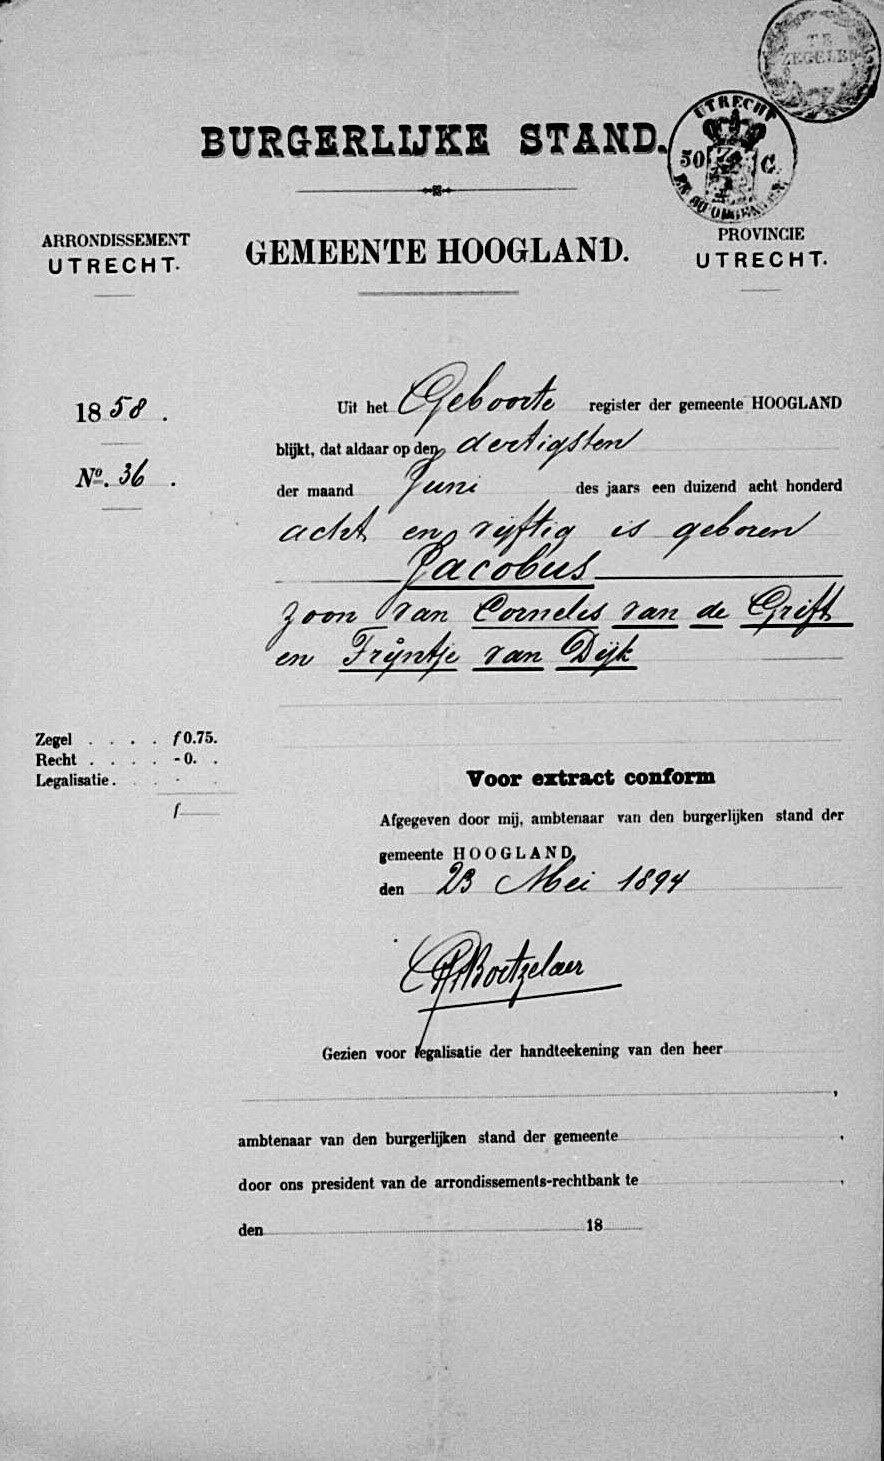 TE
ZEGELEN
UTRECHT
50 C.
BURGERLIJKE STAND.
ARRONDISSEMENT
UTRECHT.
GEMEENTE HOOGLAND.
PROVINCIE
UTRECHT.
1858.
No. 36.
Uit het Geboorte register der gemeente HOOGLAND
blijkt, dat aldaar op den dertigsten
der maand Juni des jaars een duizend acht honderd
acht en vijftig is geboren
Jacobus
zoon van Cornelis van de Grift
en Trijntje van Dijk
Zegel . . . . f 0.75.
Recht . . . . - 0. .
Legalisatie . . . .
f
Voor extract conform
Afgegeven door mij, ambtenaar van den burgerlijken stand der
gemeente HOOGLAND,
den 23 Mei 1894
Boetzelaer
Gezien voor legalisatie der handteekening van den heer
,
ambtenaar van den burgerlijken stand der gemeente .
door ons president van de arrondissements-rechtbank te ,
den 18